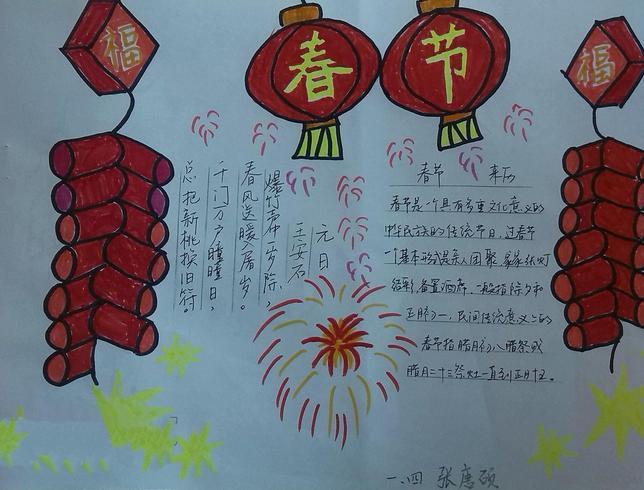 福
春
节
福
元日
王安石
爆竹声中一岁除，
春风送暖入屠岁。
千门万户瞳瞳日，
总把新桃换旧符。
春节 来历
春节是一个具有多重文化意义的
中华民族的传统节日，过春节
一个基本形式是亲人团聚，家家张灯
结彩，备置酒席，一般指除夕和
正月初一，民间传统意义上的
春节指腊月初八腊祭或
腊月二十三祭灶一直到正月十五。
一、四 张惠硕